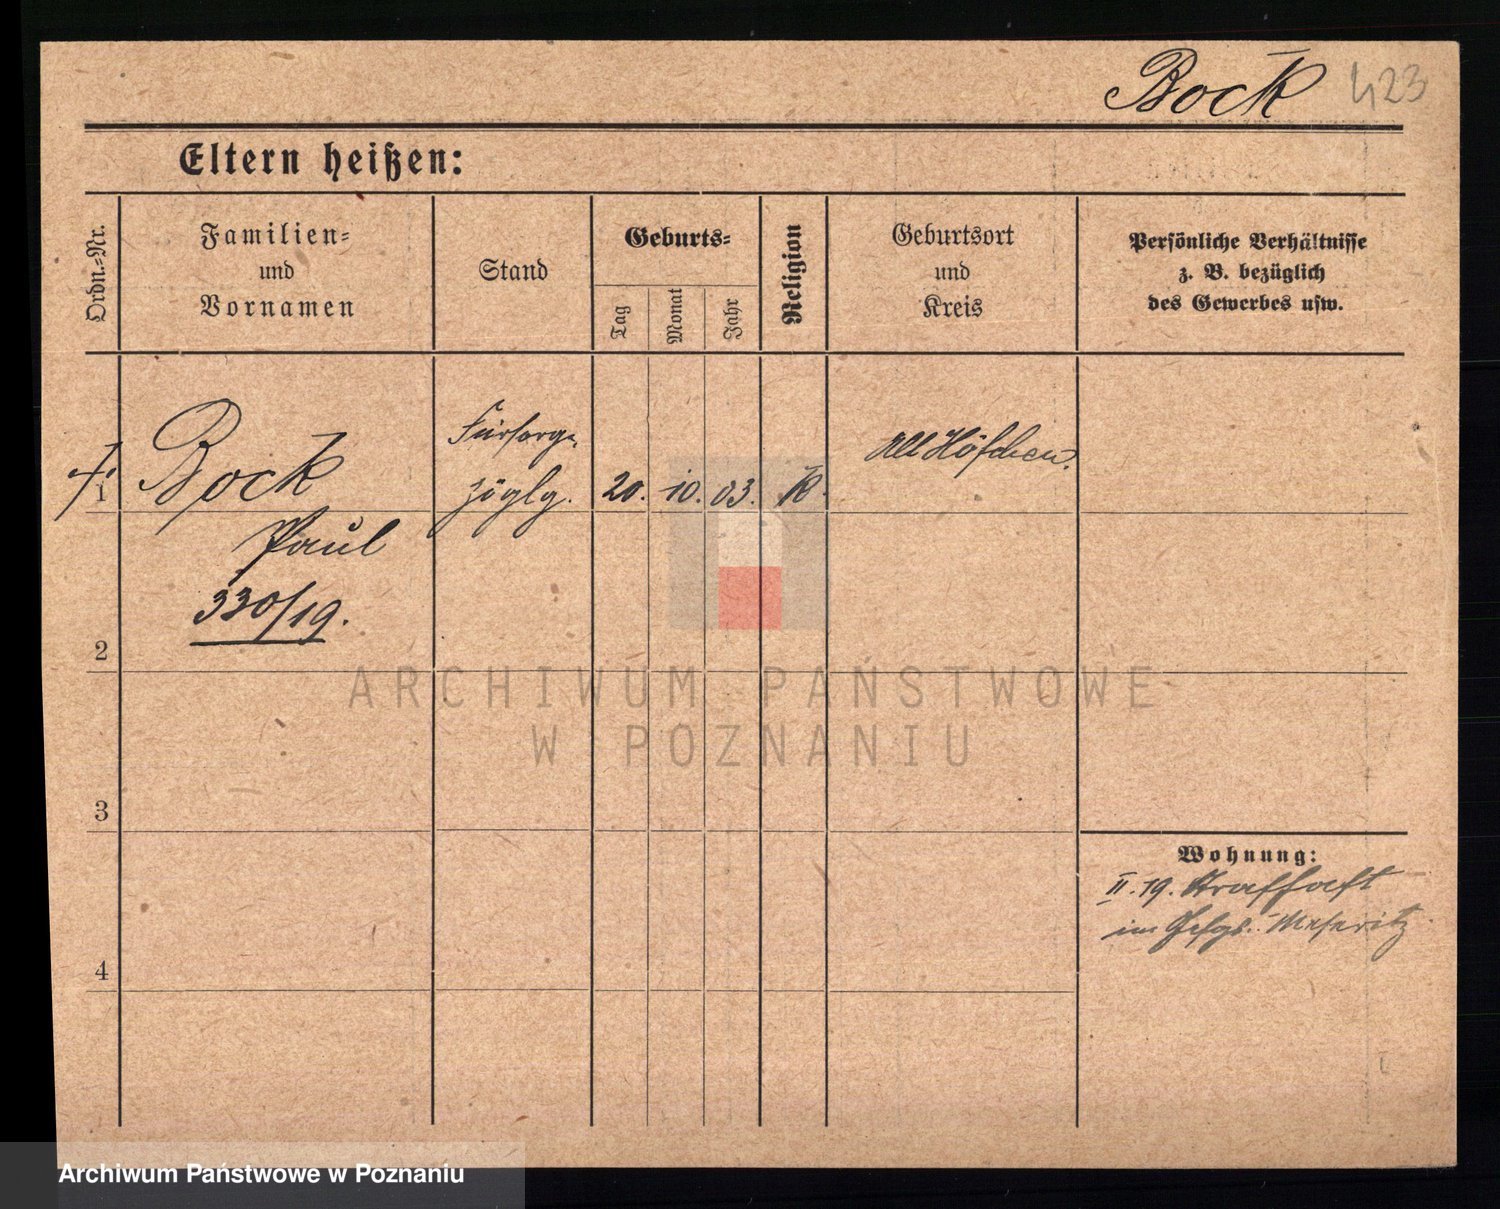 Bock 423
Eltern heißen:
Ordn.-Nr.
Familien-
und
Vornamen
Stand
Geburts-
Tag
Monat
Jahr
Religion
Geburtsort
und
Kreis
Persönliche Verhältnisse
z. B. bezüglich
des Gewerbes usw.
1
Bock
Paul
330/19.
Fürsorge
zöglg.
20. 10. 03. K.
Alt Höfchen.
2
3
4
Wohnung:
II. 19. Strafhaft
im Gefgs. Meseritz
ARCHIWUM PAŃSTWOWE
W POZNANIU
Archiwum Państwowe w Poznaniu